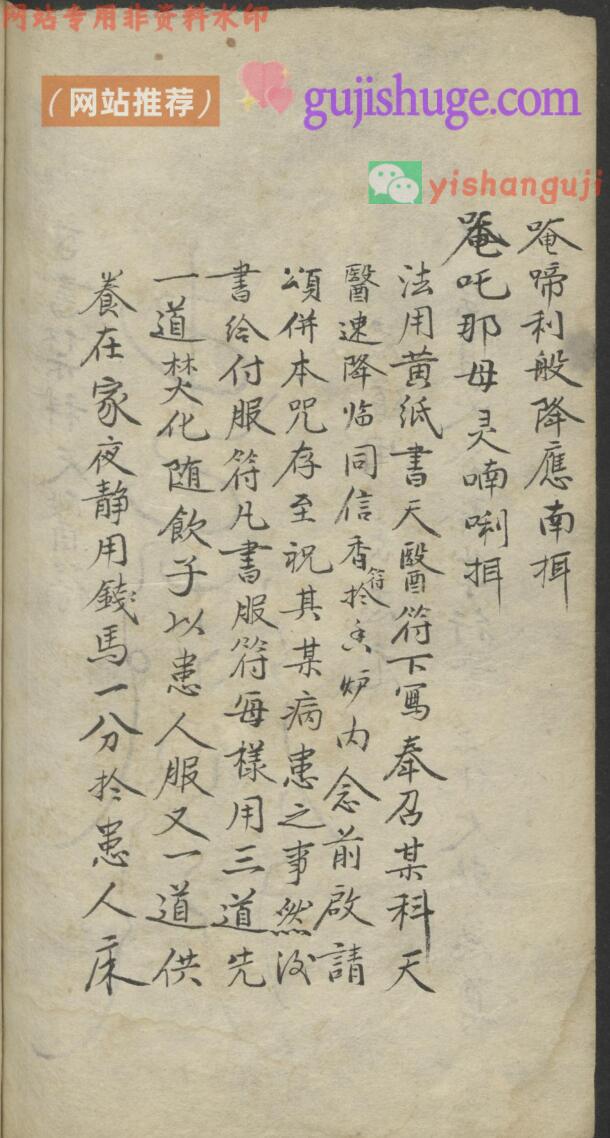 网站专用非资料水印
（网站推荐） gujishuge.com
yishanguji
唵啼利般降應南拝
唵吒那母灵喃唎拝
法用黄紙書天醫符下寫奉召某科天
醫速降临同信香符扵香炉内念前啟請
頌併本咒存至祝其某病患之事然後
書给付服符凡書服符每樣用三道先
一道焚化随飲子以患人服又一道供
養在家夜静用錢馬一分扵患人床